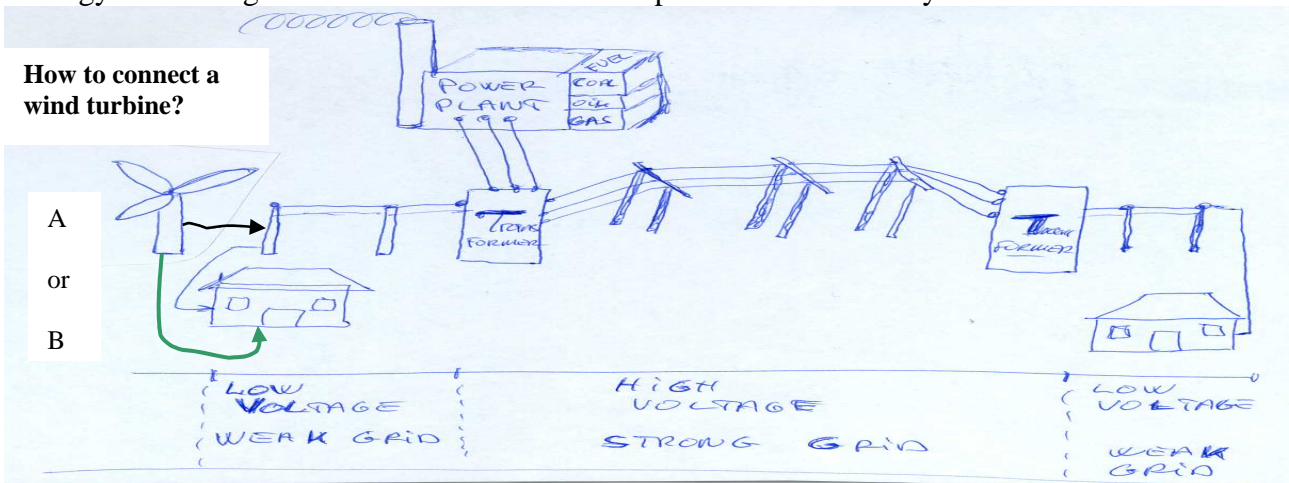 How to connect a
wind turbine?
FUEL
POWER
PLANT
COAL
OIL
GAS
A
or
B
TRANS
FORMER
FORMER
LOW
VOLTAGE
WEAK GRID
HIGH
VOLTAGE
STRONG GRID
LOW
VOLTAGE
WEAK
GRID